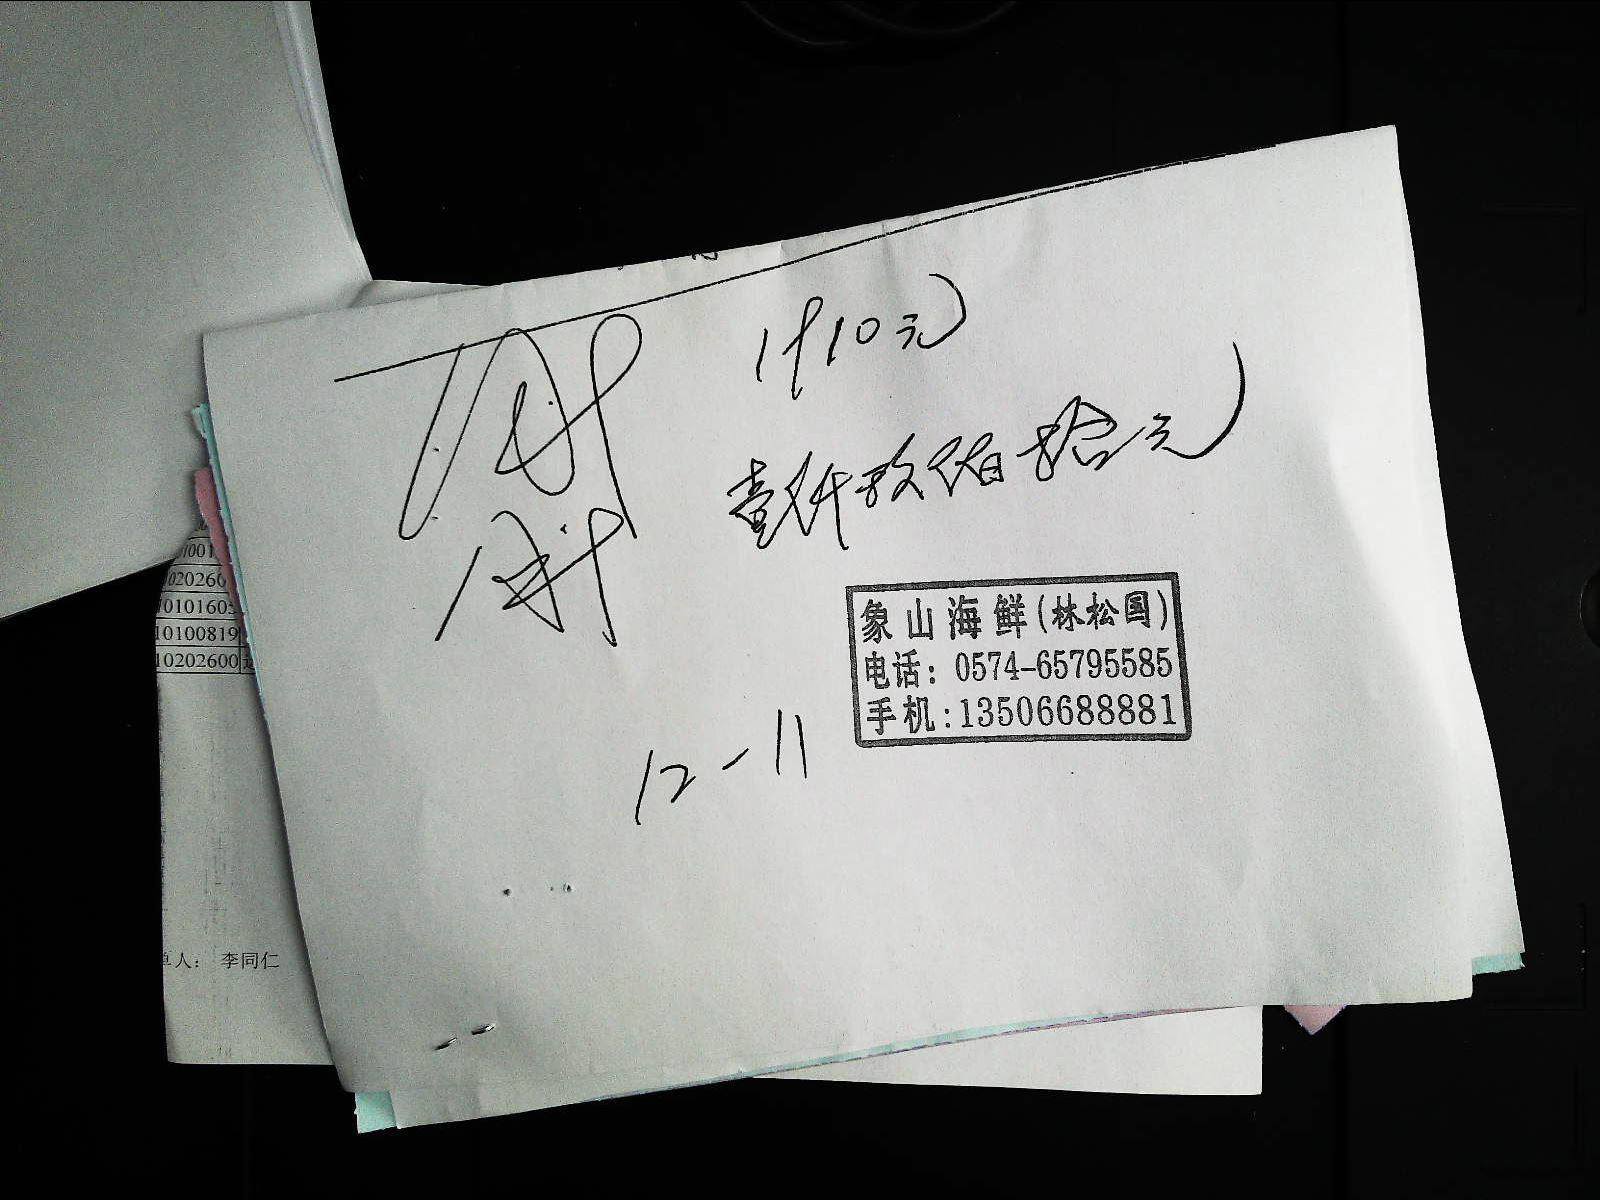 1910元
壹仟玖佰拾元
象山海鲜(林松国)
电话: 0574-65795585
手机:13506688881
12-11
001
1020260
10101605
10100819
10202600
单人: 李同仁